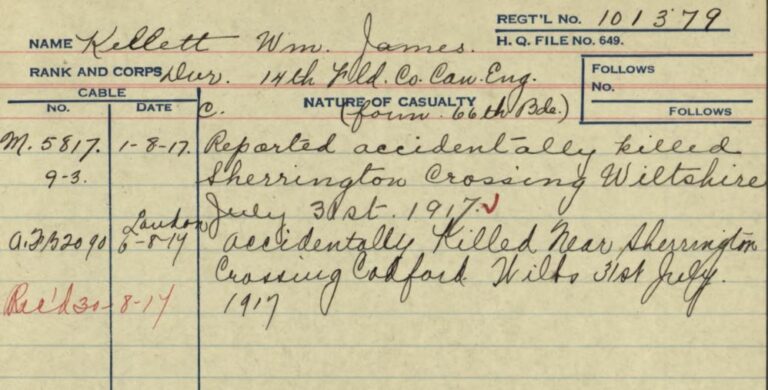 REGT'L NO. 101379
H. Q. FILE NO. 649.
NAME Kellett Wm. James.
RANK AND CORPS Dvr. 14th Fld. Co. Can. Eng.
FOLLOWS
NO.
FOLLOWS
CABLE
NO. DATE
C. NATURE OF CASUALTY
(form. 66th Bde.)
M. 5817. 1-8-17. Reported accidentally killed
9-3. Sherrington Crossing Wiltshire
July 31st. 1917. ✓
London
A.F.B2090 6-8-17 Accidentally Killed Near Sherrington
Crossing Codford Wilts 31st July.
Rec'd 30-8-17 1917